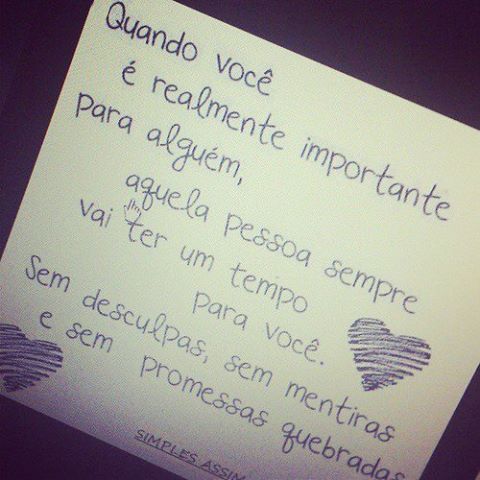 Quando você
é realmente importante
para alguém,
aquela pessoa sempre
vai ter um tempo
para você.
Sem desculpas, sem mentiras
e sem promessas quebradas
SIMPLES ASSIM